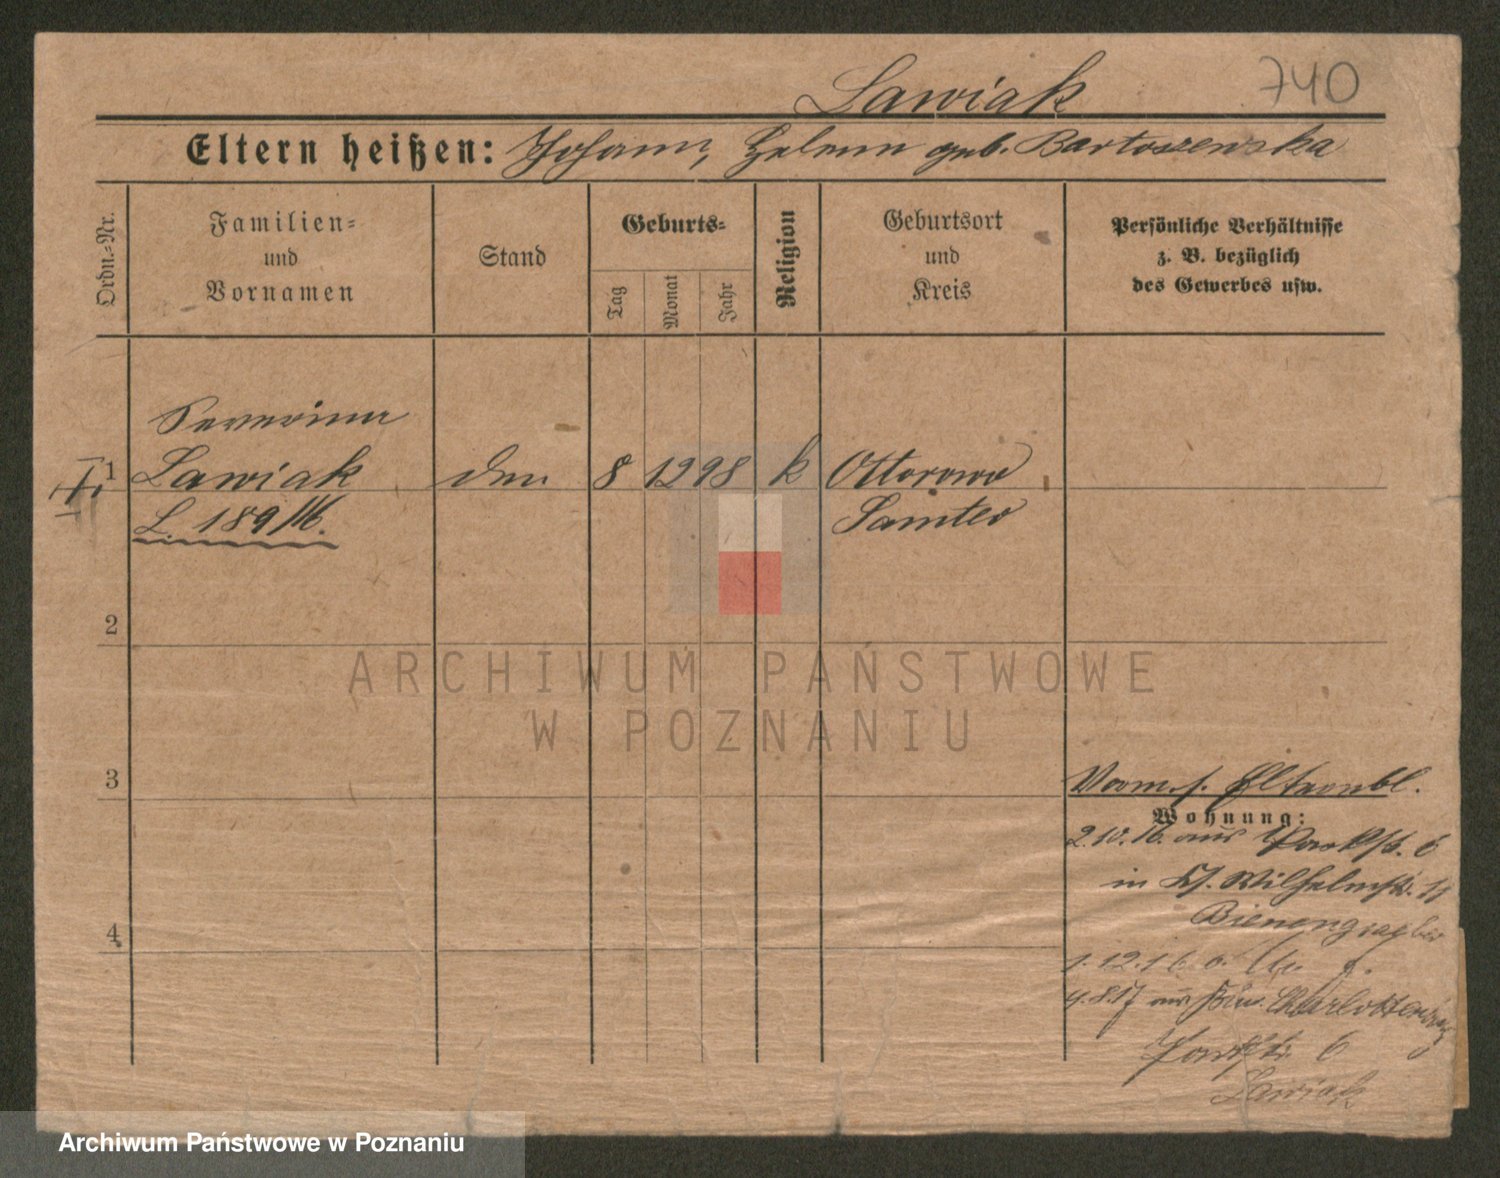 740
Lawiak
Eltern heißen: Johann, Helene geb. Bartoszewska
Ordn.-Nr.
Familien-
und
Vornamen
Stand
Geburts-
Tag
Monat
Jahr
Religion
Geburtsort
und
Kreis
Persönliche Verhältnisse
z. B. bezüglich
des Gewerbes usw.
Severina
1 Lawiak 8 12 98 k Ottorowo
L. 189/16. Samter
2
3
4
Vorm. s. Elternbl.
Wohnung:
2.10.16. aus Parkstr. 6
in Kl. Wilhelmstr. 11
1.12.16
4.8.17 aus Charlottenburg
Parkstr. 6
Lawiak
ARCHIWUM PAŃSTWOWE
W POZNANIU
Archiwum Państwowe w Poznaniu